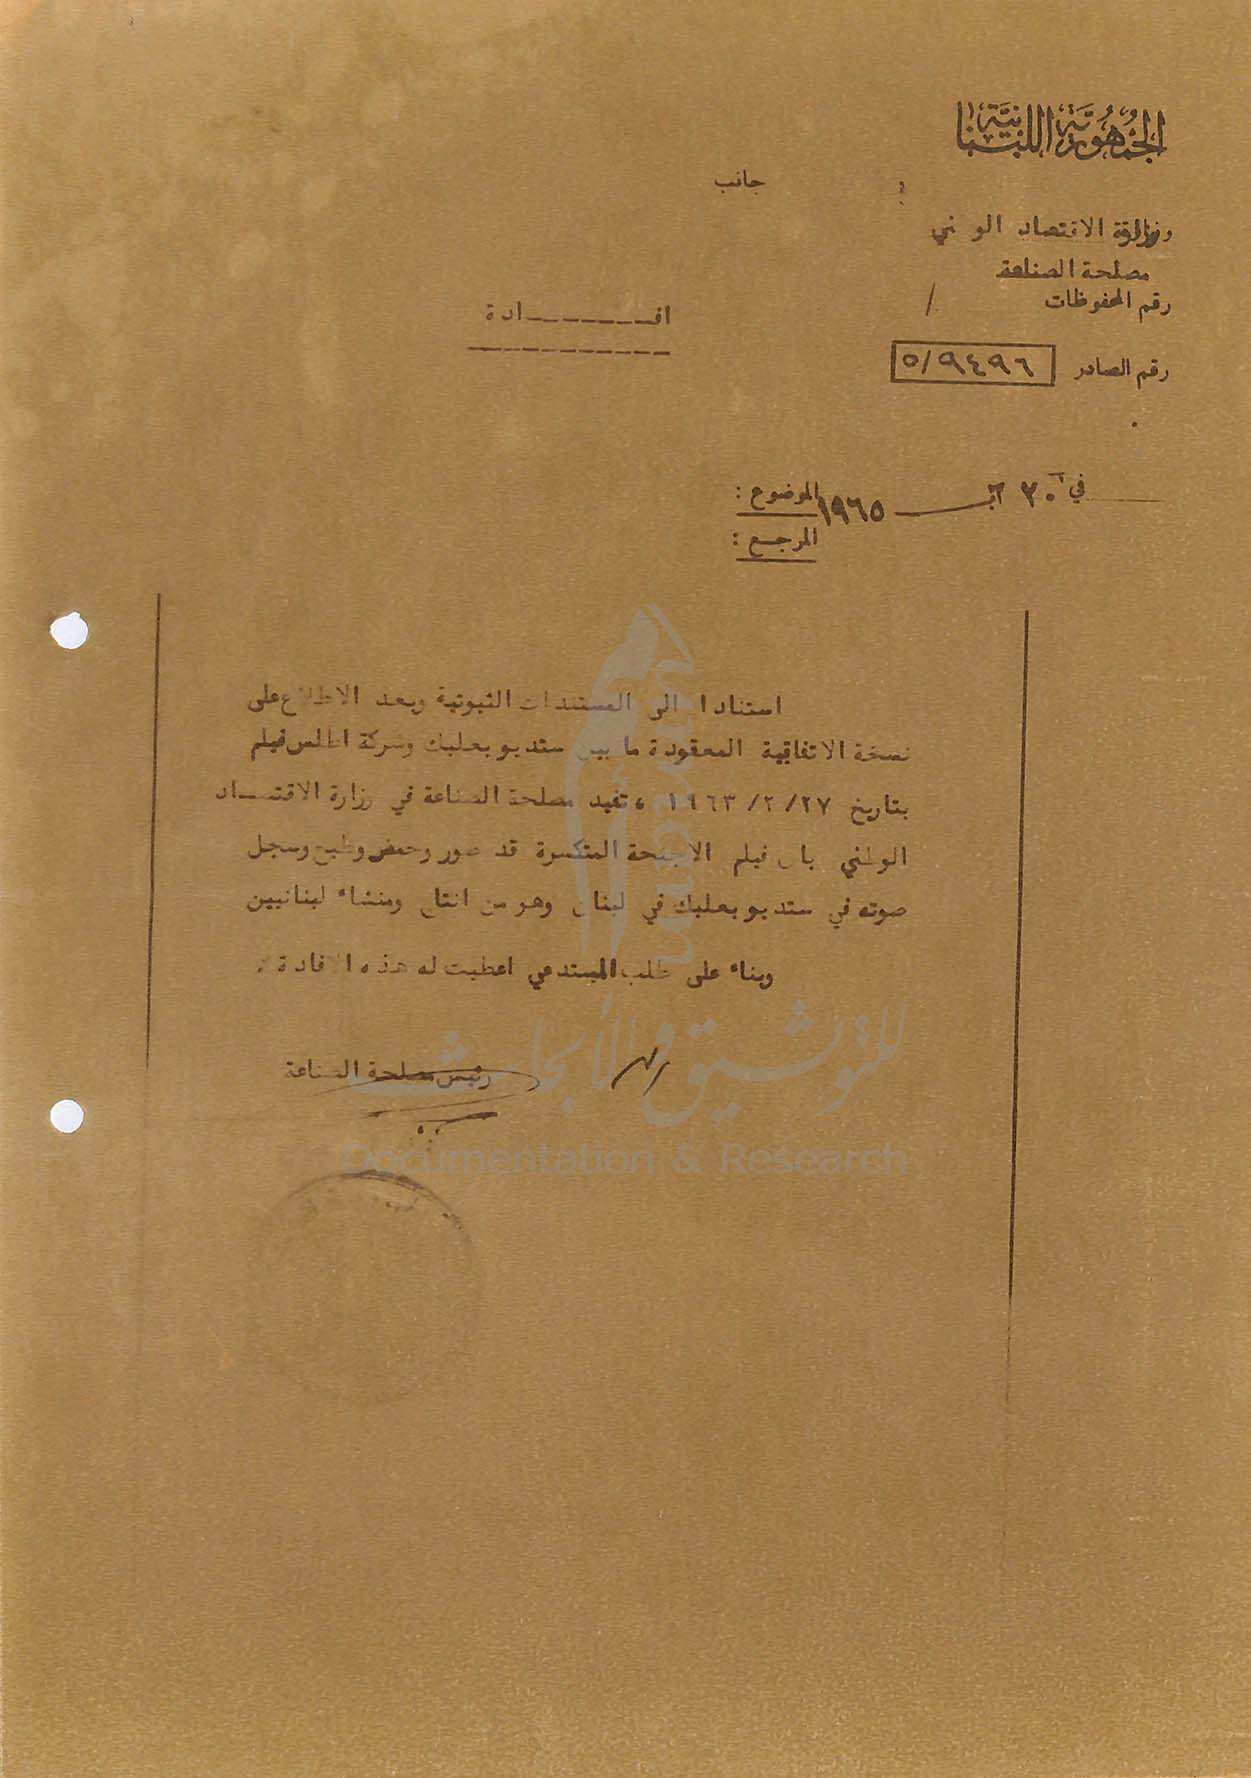 الجمهورية اللبنانية
جانب
وزارة الاقتصاد الوطني
مصلحة الصناعة
رقم المحفوظات /
افـــــــادة
رقم الصادر ٥/٩٤٩٦
في ٢٠ آب ١٩٦٥
الموضوع :
المرجع :
استنادا الى المستندات الثبوتية وبعد الاطلاع على
نسخة الاتفاقية المعقودة ما بين ستديو بعلبك وشركة اطلس فيلم
بتاريخ ٢٧/ ٢/ ١٩٦٣ ، تفيد مصلحة الصناعة في وزارة الاقتصـــاد
الوطني بان فيلم الاجنحة المتكسرة قد صور وحمض وطبع وسجل
صوته في ستديو بعلبك في لبنان وهو من انتاج ومنشاء لبنانيين
وبناء على طلب المستدعي اعطيت له هذه الافادة ٪
رئيس مصلحة الصناعة
للتوثيق والأبحاث
Documentation & Research